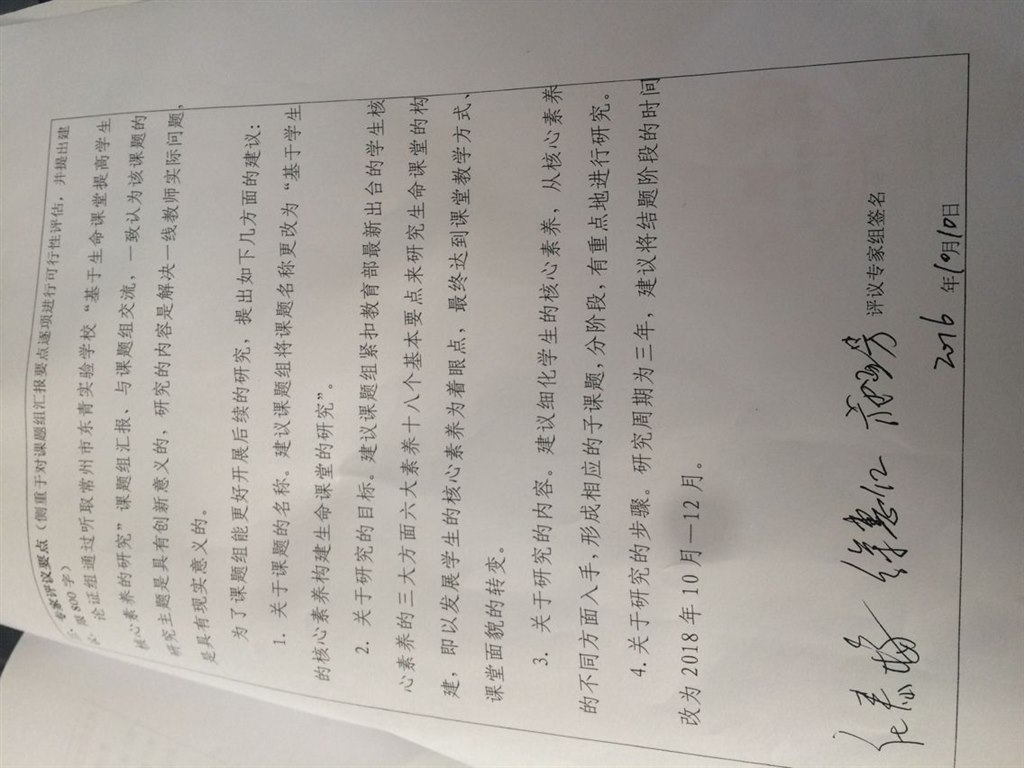 专家评议要点（侧重于对课题组汇报要点逐项进行可行性评估，并提出建
限800字）
论证组通过听取常州市东青实验学校“基于生命课堂提高学生
核心素养的研究”课题组汇报、与课题组交流，一致认为该课题的
研究主题是具有创新意义的，研究的内容是解决一线教师实际问题，
是具有现实意义的。
为了课题组能更好开展后续的研究，提出如下几方面的建议：
1. 关于课题的名称。建议课题组将课题名称更改为“基于学生
的核心素养构建生命课堂的研究”。
2. 关于研究的目标。建议课题组紧扣教育部最新出台的学生核
心素养的三大方面六大素养十八个基本要点来研究生命课堂的构
建，即以发展学生的核心素养为着眼点，最终达到课堂教学方式、
课堂面貌的转变。
3. 关于研究的内容。建议细化学生的核心素养，从核心素养
的不同方面入手，形成相应的子课题，分阶段，有重点地进行研究。
4.关于研究的步骤。研究周期为三年，建议将结题阶段的时间
改为2018年10月—12月。
评议专家组签名
2016年10月10日